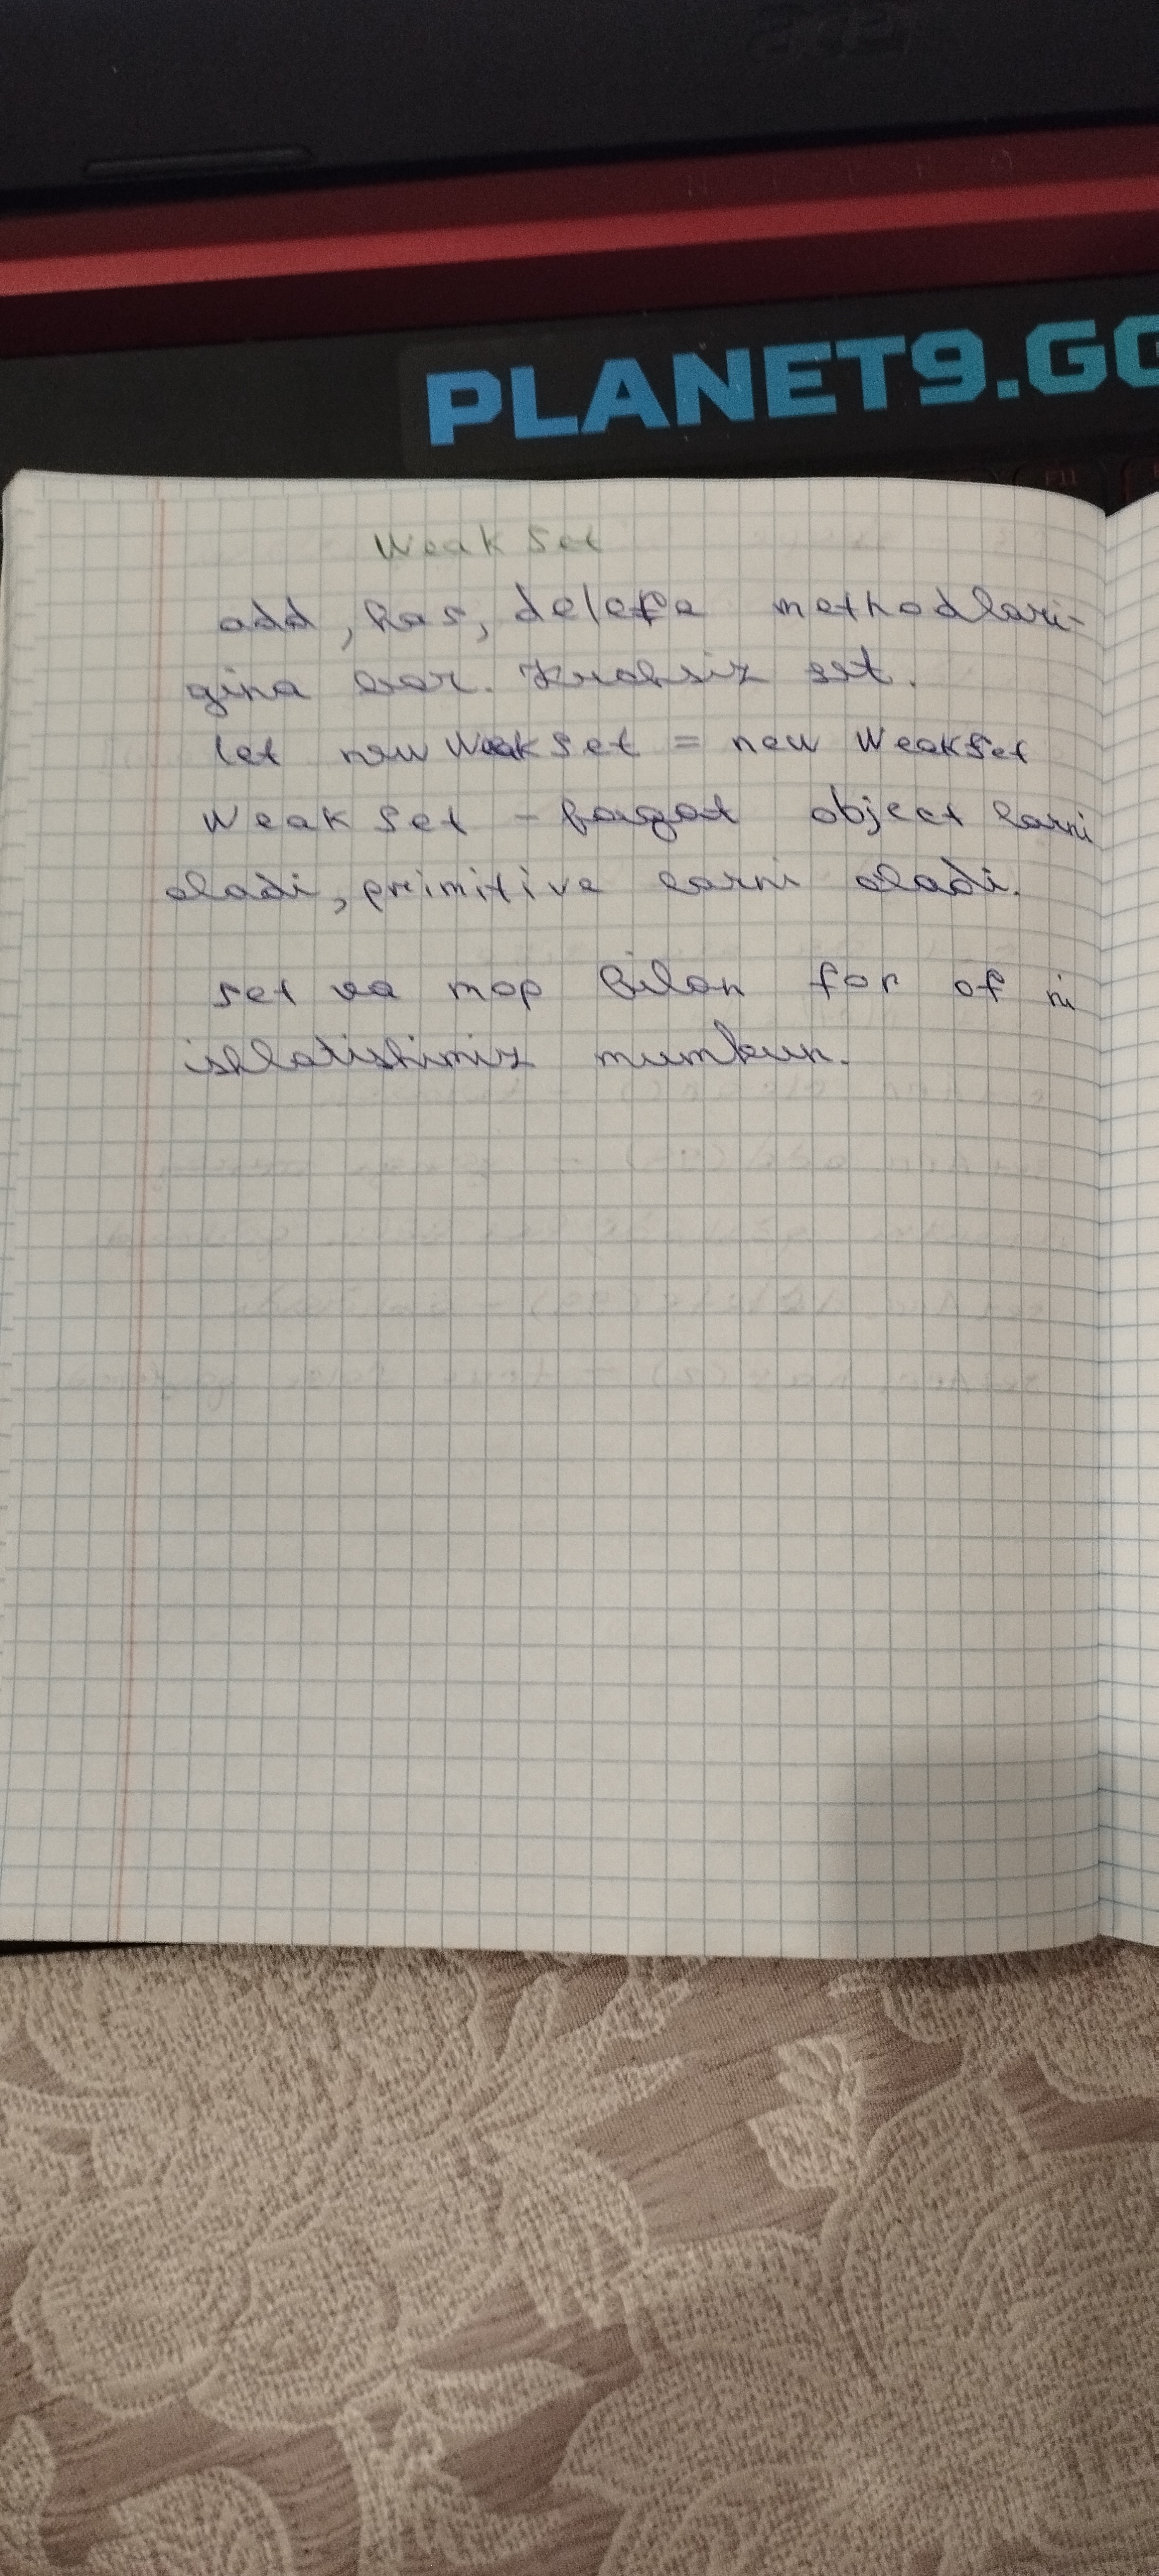 PLANET9.GG
F11
Weak Set
add, has, delete methodlari-
gina bor. Kuchsiz set.
let new WeakSet = new WeakSet
Weak Set - faqat object larni
oladi, primitive larni oladi.
set va map bilan for of ni
ishlatishimiz mumkun.